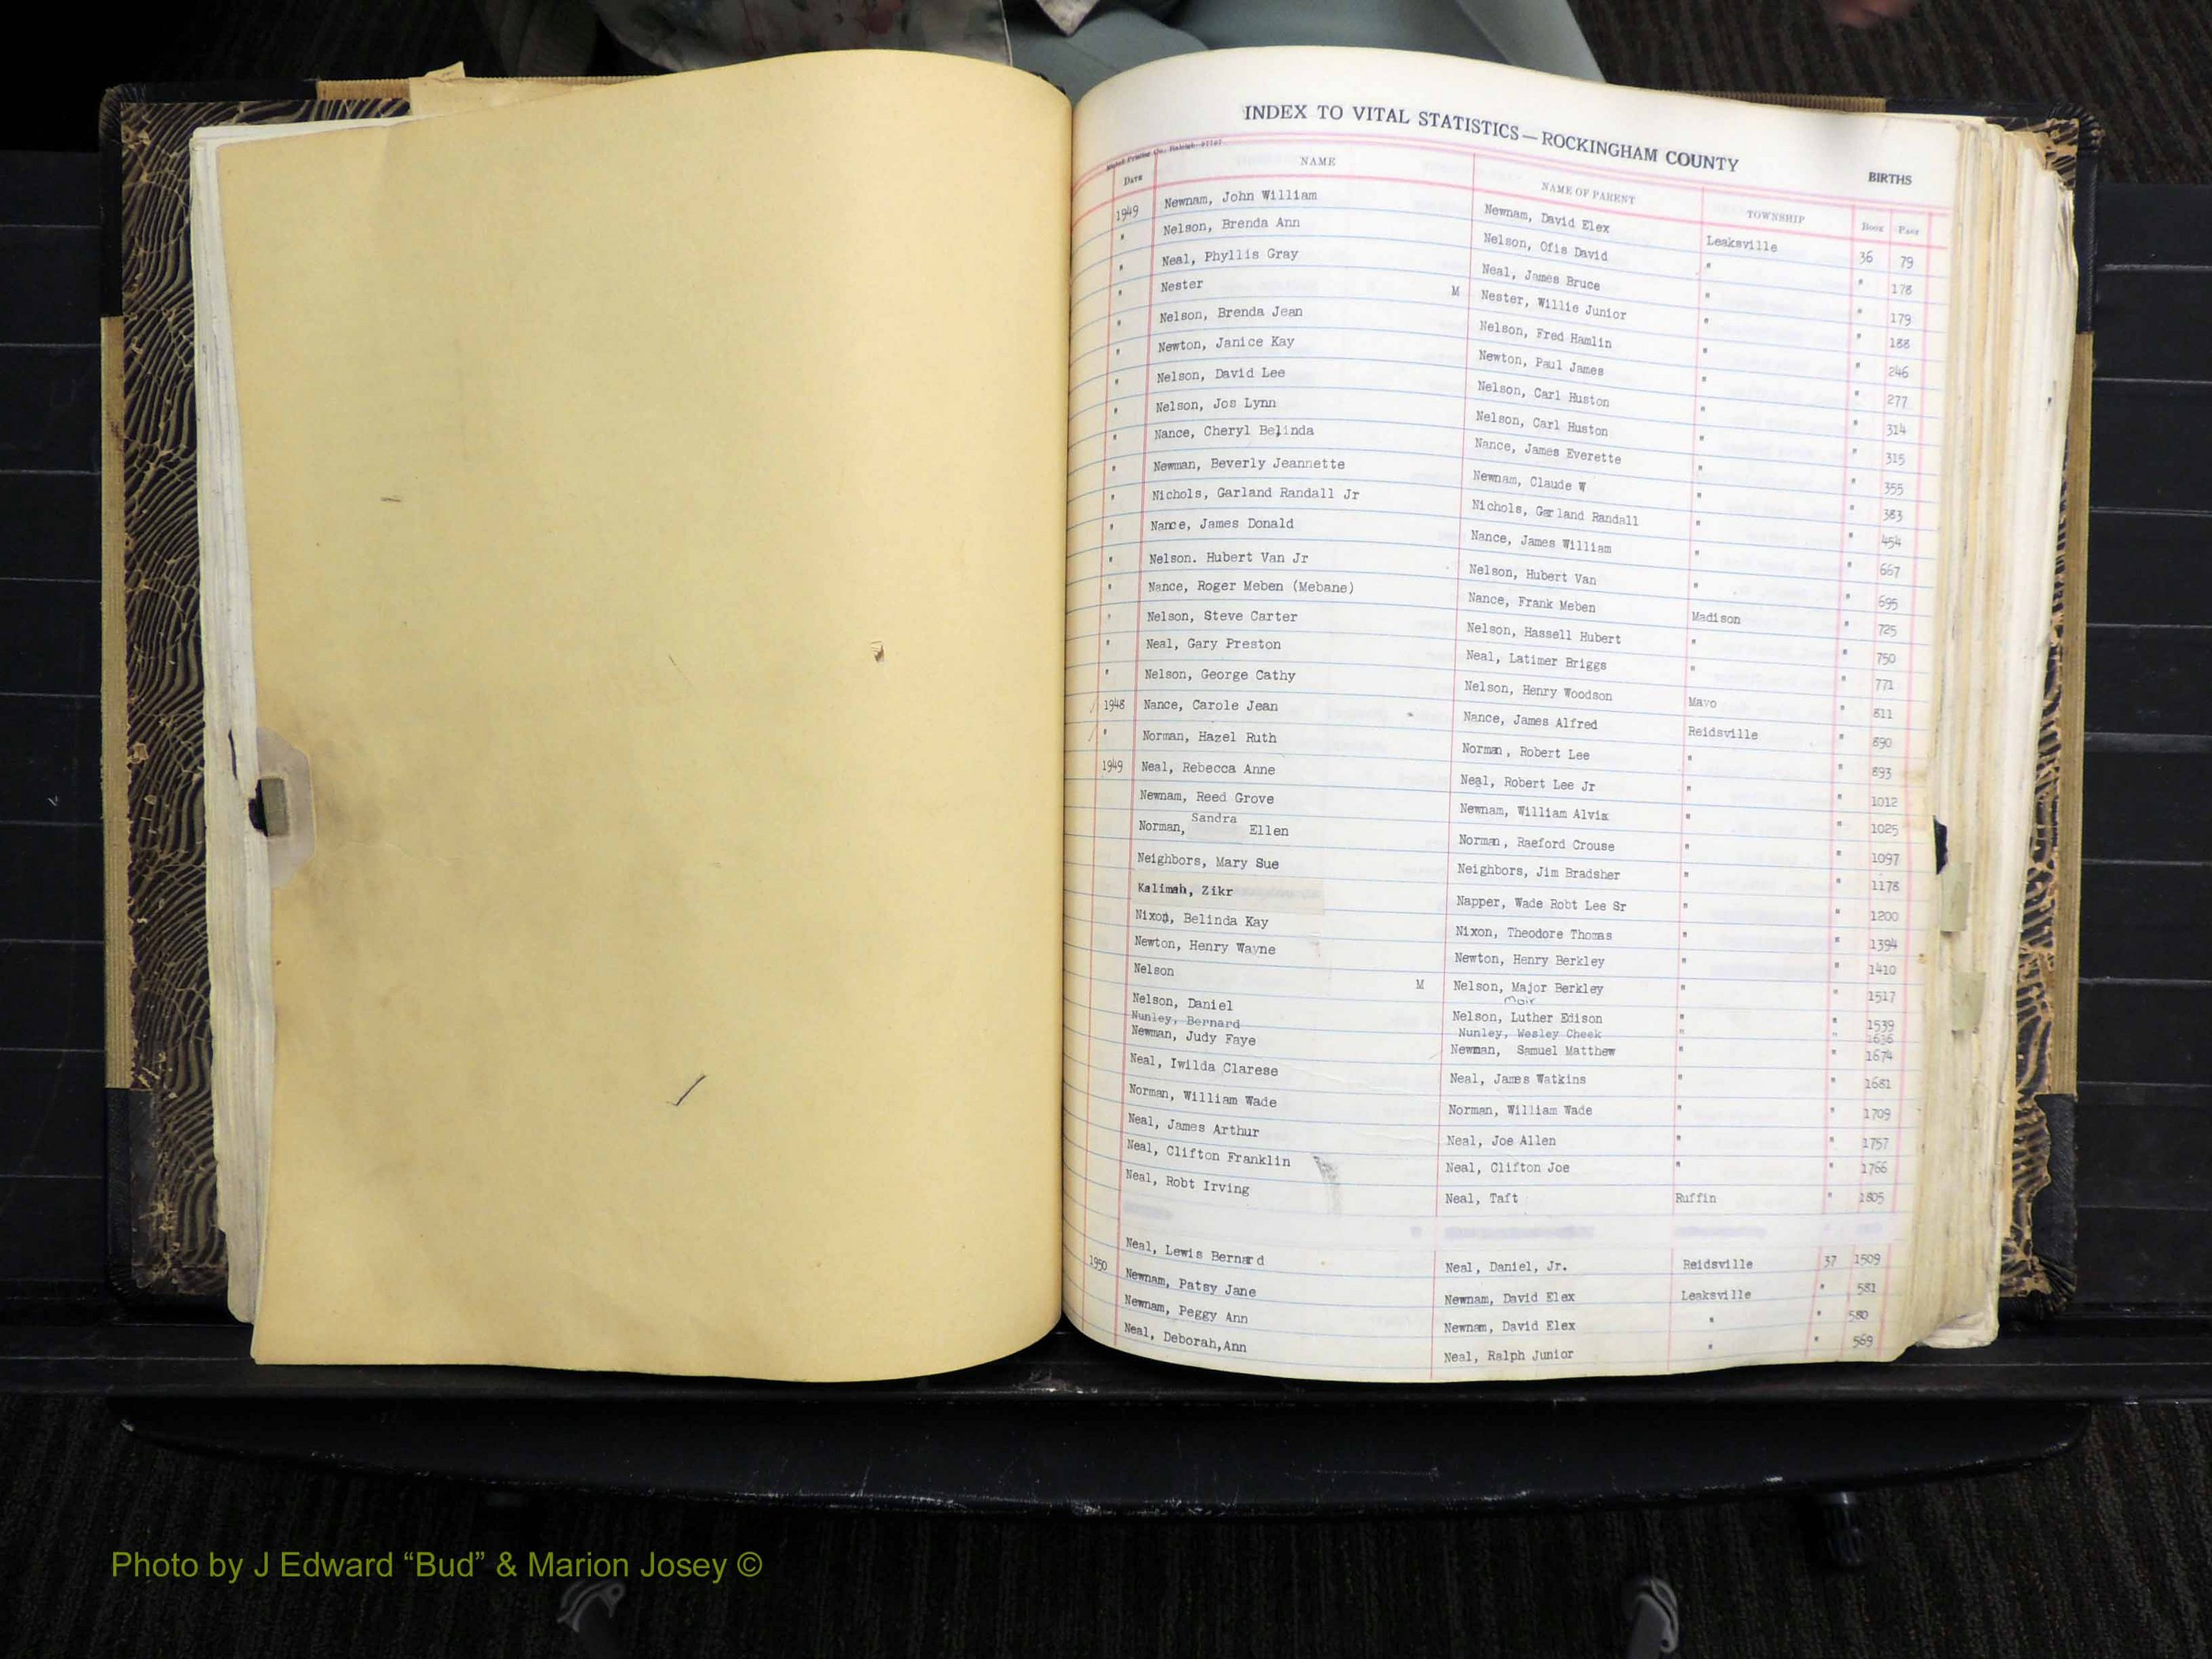 INDEX TO VITAL STATISTICS — ROCKINGHAM COUNTY
BIRTHS
DATE NAME NAME OF PARENT TOWNSHIP Book Page
1949 Newnam, John William Newnam, David Elex Leaksville 36 79
" Nelson, Brenda Ann Nelson, Ofis David " " 178
" Neal, Phyllis Gray Neal, James Bruce " " 179
" Nester M Nester, Willie Junior " " 188
" Nelson, Brenda Jean Nelson, Fred Hamlin " " 246
" Newton, Janice Kay Newton, Paul James " " 277
" Nelson, David Lee Nelson, Carl Huston " " 314
" Nelson, Jos Lynn Nelson, Carl Huston " " 315
" Nance, Cheryl Belinda Nance, James Everette " " 355
" Newman, Beverly Jeannette Newnam, Claude W " " 383
" Nichols, Garland Randall Jr Nichols, Garland Randall " " 454
" Nance, James Donald Nance, James William " " 667
" Nelson. Hubert Van Jr Nelson, Hubert Van " " 695
" Nance, Roger Meben (Mebane) Nance, Frank Meben Madison " 725
" Nelson, Steve Carter Nelson, Hassell Hubert " " 750
" Neal, Gary Preston Neal, Latimer Briggs " " 771
" Nelson, George Cathy Nelson, Henry Woodson Mayo " 811
1948 Nance, Carole Jean Nance, James Alfred Reidsville " 890
" Norman, Hazel Ruth Norman, Robert Lee " " 893
1949 Neal, Rebecca Anne Neal, Robert Lee Jr " " 1012
Newnam, Reed Grove Newnam, William Alvis " " 1025
Norman, Sandra Ellen Norman, Raeford Crouse " " 1097
Neighbors, Mary Sue Neighbors, Jim Bradsher " " 1178
Kalimah, Zikr Napper, Wade Robt Lee Sr " " 1200
Nixon, Belinda Kay Nixon, Theodore Thomas " " 1394
Newton, Henry Wayne Newton, Henry Berkley " " 1410
Nelson M Nelson, Major Berkley " " 1517
Moir
Nelson, Daniel Nelson, Luther Edison " " 1539
Nunley, Bernard Nunley, Wesley Cheek " " 1636
Newman, Judy Faye Newman, Samuel Matthew " " 1674
Neal, Iwilda Clarese Neal, James Watkins " " 1681
Norman, William Wade Norman, William Wade " " 1709
Neal, James Arthur Neal, Joe Allen " " 1757
Neal, Clifton Franklin Neal, Clifton Joe " " 1766
Neal, Robt Irving Neal, Taft Ruffin " 1805
Neal, Lewis Bernard Neal, Daniel, Jr. Reidsville 37 1509
1950 Newnam, Patsy Jane Newnam, David Elex Leaksville " 581
Newnam, Peggy Ann Newnam, David Elex " " 580
Neal, Deborah,Ann Neal, Ralph Junior " " 569
Photo by J Edward “Bud” & Marion Josey ©